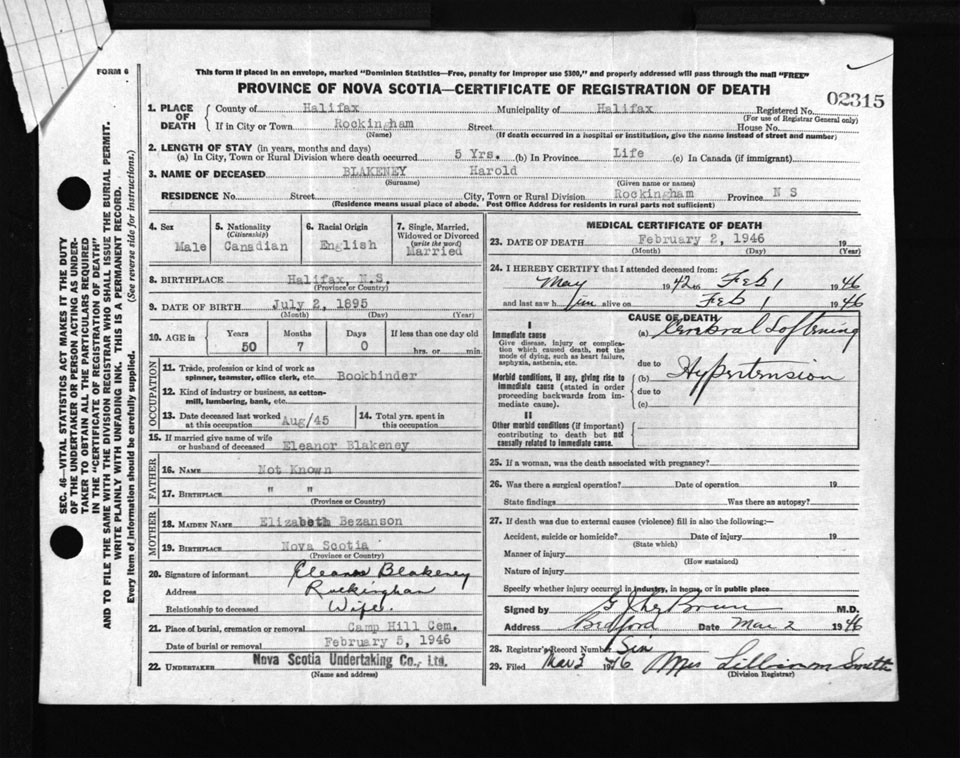 FORM 6
This form if placed in an envelope, marked "Dominion Statistics—Free, penalty for improper use $300," and properly addressed will pass through the mail "FREE"
PROVINCE OF NOVA SCOTIA—CERTIFICATE OF REGISTRATION OF DEATH
SEC. 46—VITAL STATISTICS ACT MAKES IT THE DUTY
OF THE UNDERTAKER OR PERSON ACTING AS UNDER-
TAKER TO OBTAIN ALL THE PARTICULARS REQUIRED
IN THE "CERTIFICATE OF REGISTRATION OF DEATH"
AND TO FILE THE SAME WITH THE DIVISION REGISTRAR WHO SHALL ISSUE THE BURIAL PERMIT.
WRITE PLAINLY WITH UNFADING INK. THIS IS A PERMANENT RECORD.
Every item of information should be carefully supplied. (See reverse side for instructions.)
1. PLACE OF DEATH
County of Halifax Municipality of Halifax Registered No. 02315
(For use of Registrar General only)
If in City or Town Rockingham Street House No.
(Name) (If death occurred in a hospital or institution, give the name instead of street and number)
2. LENGTH OF STAY (in years, months and days)
(a) In City, Town or Rural Division where death occurred 5 Yrs. (b) In Province Life (c) In Canada (if immigrant)
3. NAME OF DECEASED BLAKENEY Harold
(Surname) (Given name or names)
RESIDENCE No. Street City, Town or Rural Division Rockingham Province N S
(Residence means usual place of abode. Post Office Address for residents in rural parts not sufficient)
4. Sex
Male
5. Nationality
(Citizenship)
Canadian
6. Racial Origin
English
7. Single, Married,
Widowed or Divorced
(write the word)
Married
8. BIRTHPLACE Halifax, N.S.
(Province or Country)
9. DATE OF BIRTH July 2, 1895
(Month) (Day) (Year)
10. AGE in
Years Months Days If less than one day old
50 7 0 hrs. or min.
OCCUPATION
11. Trade, profession or kind of work as
spinner, teamster, office clerk, etc. Bookbinder
12. Kind of industry or business, as cotton-
mill, lumbering, bank, etc.
13. Date deceased last worked
at this occupation Aug/45
14. Total yrs. spent in
this occupation
15. If married give name of wife
or husband of deceased Eleanor Blakeney
FATHER
16. NAME Not Known
17. BIRTHPLACE " "
(Province or Country)
MOTHER
18. MAIDEN NAME Elizabeth Bezanson
19. BIRTHPLACE Nova Scotia
(Province or Country)
20. Signature of informant Eleanor Blakeney
Address Rockingham
Relationship to deceased Wife.
21. Place of burial, cremation or removal Camp Hill Cem.
Date of burial or removal February 5, 1946
22. UNDERTAKER Nova Scotia Undertaking Co., Ltd.
(Name and address)
MEDICAL CERTIFICATE OF DEATH
23. DATE OF DEATH February 2, 1946 19
(Month) (Day) (Year)
24. I HEREBY CERTIFY that I attended deceased from:
May 1942 to Feb 1 1946
and last saw him alive on Feb 1 1946
CAUSE OF DEATH
I
Immediate cause
Give disease, injury or compli-
cation which caused death, not the
mode of dying, such as heart failure,
asphyxia, asthenia, etc.
(a) Cerebral Softening
due to
Morbid conditions, if any, giving rise to
immediate cause (stated in order
proceeding backwards from im-
mediate cause).
(b) Hypertension
due to
(c)
II
Other morbid conditions (if important)
contributing to death but not
causally related to immediate cause.
25. If a woman, was the death associated with pregnancy?
26. Was there a surgical operation? Date of operation 19
State findings Was there an autopsy?
27. If death was due to external causes (violence) fill in also the following:—
Accident, suicide or homicide? Date of injury 19
(State which)
Manner of injury
(How sustained)
Nature of injury
Specify whether injury occurred in industry, in home, or in public place
Signed by M.D.
Address Bedford Date Mar 2 1946
28. Registrar's Record Number Six
29. Filed Mar 3 1946 Mrs Lillian M Smith
(Division Registrar)